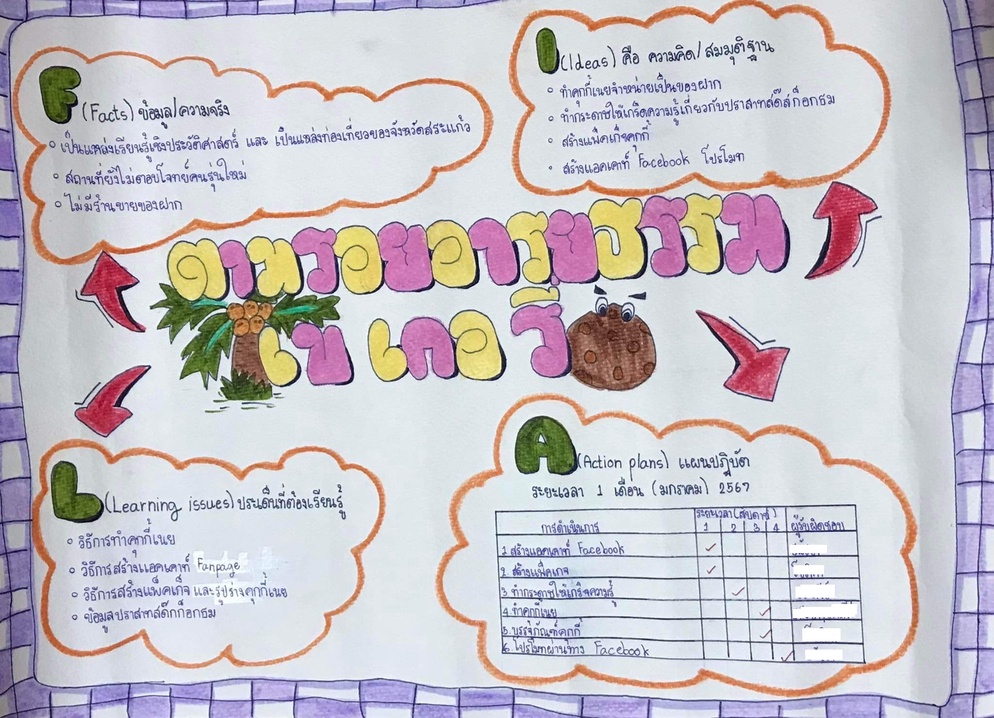 F (Facts) ข้อมูล/ความจริง
เป็นแหล่งเรียนรู้เชิงประวัติศาสตร์ และ เป็นแหล่งท่องเที่ยวของจังหวัดสระแก้ว
สถานที่ยังไม่ตอบโจทย์คนรุ่นใหม่
ไม่มีร้านขายของฝาก
I (Ideas) คือ ความคิด/สมมุติฐาน
ทำคุกกี้เนยจำหน่ายเป็นของฝาก
ทำกระดาษให้เกร็ดความรู้เกี่ยวกับปราสาทสด๊กก๊อกธม
สร้างแพ็คเกจคุกกี้
สร้างแอคเคาท์ Facebook โปรโมท
ตามรอยอารยธรรม
เขเกอรี่
L (Learning issues) ประเด็นที่ต้องเรียนรู้
วิธีการทำคุกกี้เนย
วิธีการสร้างแอคเคาท์ Fanpage
วิธีการสร้างแพ็คเกจ และรูปร่างคุกกี้เนย
ข้อมูลปราสาทสด๊กก๊อกธม
A (Action plans) แผนปฏิบัติ
ระยะเวลา 1 เดือน (มกราคม) 2567
การดำเนินการ ระยะเวลา (สัปดาห์) ผู้รับผิดชอบ
1 2 3 4
1. สร้างแอคเคาท์ Facebook ✓
2. สร้างแพ็คเกจ ✓
3. ทำกระดาษให้เกร็ดความรู้ ✓
4. ทำคุกกี้เนย ✓
5. บรรจุภัณฑ์คุกกี้ ✓
6. โปรโมทผ่านทาง Facebook ✓